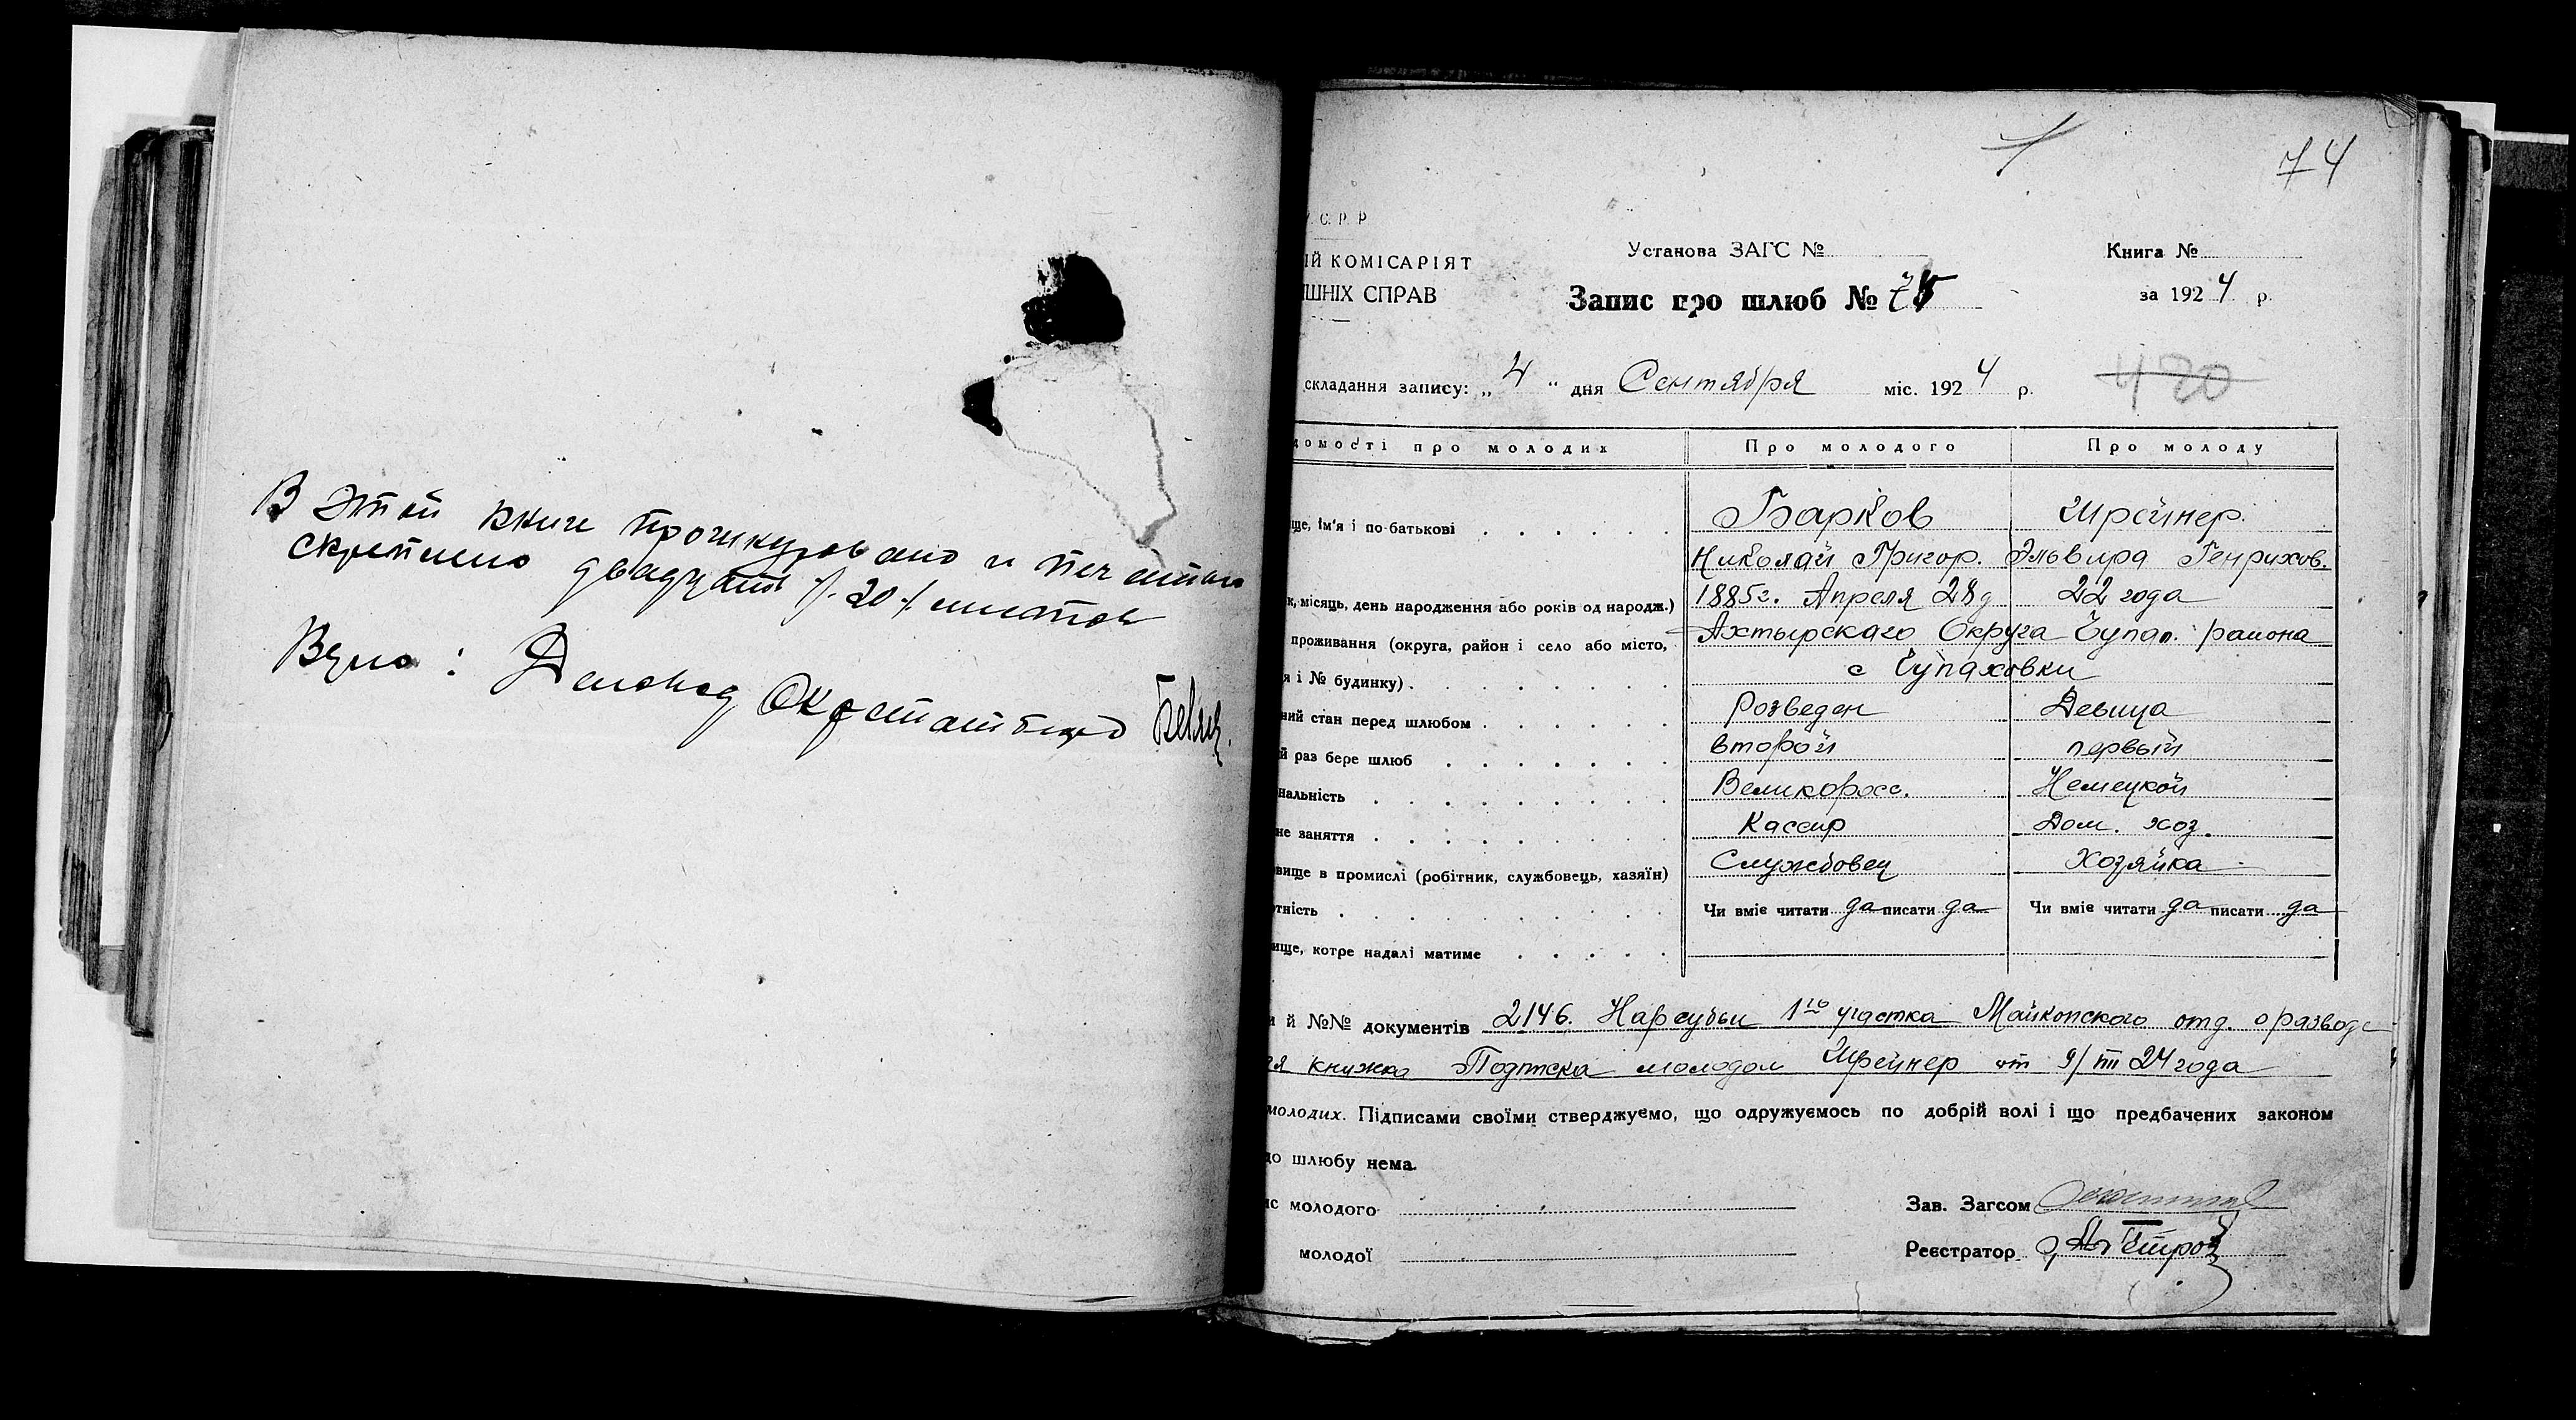 В этой книге прошнуровано и печатью
скреплено двадцать /-20-/ листов
Верно: Деловод Окрстатбюро
74
С. Р. Р
ІЙ КОМІСАРІЯТ
ІШНІХ СПРАВ
Установа ЗАГС №
Книга №
Запис про шлюб №
за 1924 р.
складання запису: „4“ дня Сентября міс. 1924 р.
420
домості про молодих Про молодого Про молоду
ще, ім'я і по-батькові Барков Шрейнер.
Николай Григор. Эльвира Генрихов.
к, місяць, день народження або років од народж.) 1885г. Апреля 28д 22 года
проживання (округа, район і село або місто, Ахтырскаго Округа Чупах. района
я і № будинку) с Чупаховки
ний стан перед шлюбом Розведен Девица
й раз бере шлюб второй первый
нальність Великоросс. Немецкой
не заняття Кассир Дом. хоз.
вище в промислі (робітник, службовець, хазяїн) Службовец Хозяйка
тність Чи вміє читати да писати да Чи вміє читати да писати да
ище, котре надалі матиме
и й №№ документів 2146. Нарсудьи 1го участка Майкопского отд. о разводе
книжка Подписка молодой Шрейнер от 24 года
молодих. Підписами своїми стверджуємо, що одружуємось по добрій волі і що предбачених законом
до шлюбу нема.
ис молодого Зав. Загсом
молодої Реєстратор Петров